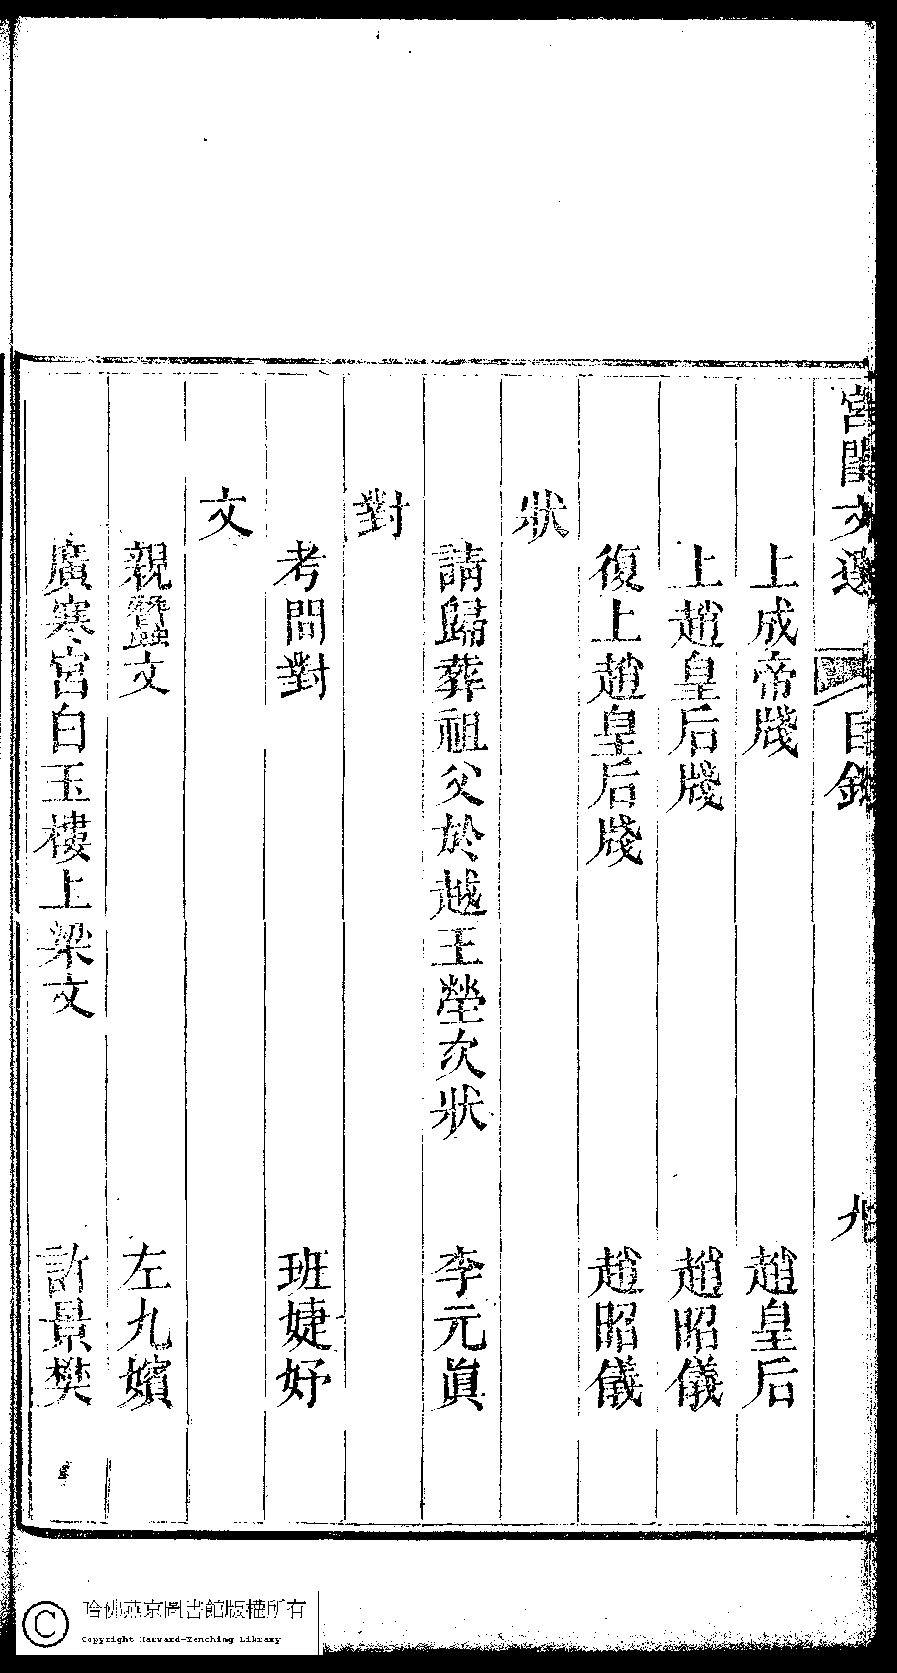 宮閨文選 目錄 九
上成帝牋 趙皇后
上趙皇后牋 趙昭儀
復上趙皇后牋 趙昭儀
狀
請歸葬祖父於越王塋次狀 李元眞
對
考問對 班婕妤
文
親蠶文 左九嬪
廣寒宮白玉樓上梁文 許景樊
哈佛燕京圖書館版權所有
Copyright Harvard-Yenching Library